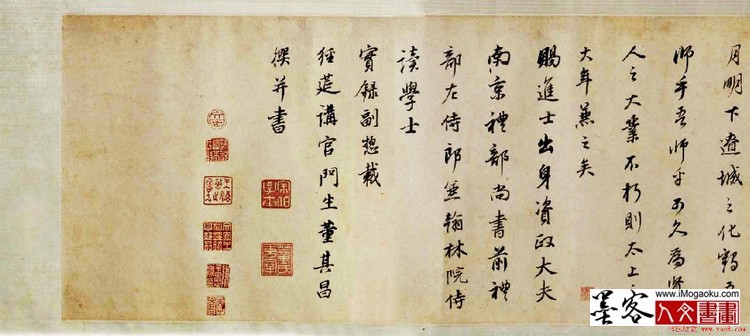 月明下遼城之化鶴
師乎吾師乎可久為賢
人之大業不朽則太上之
大年兼之矣
賜進士出身資政大夫
南京禮部尚書前禮
部左侍郎兼翰林院侍
讀學士
實錄副總裁
經筵講官門生董其昌
撰并書
墨客
www.iMogaoku.com
人文書畫